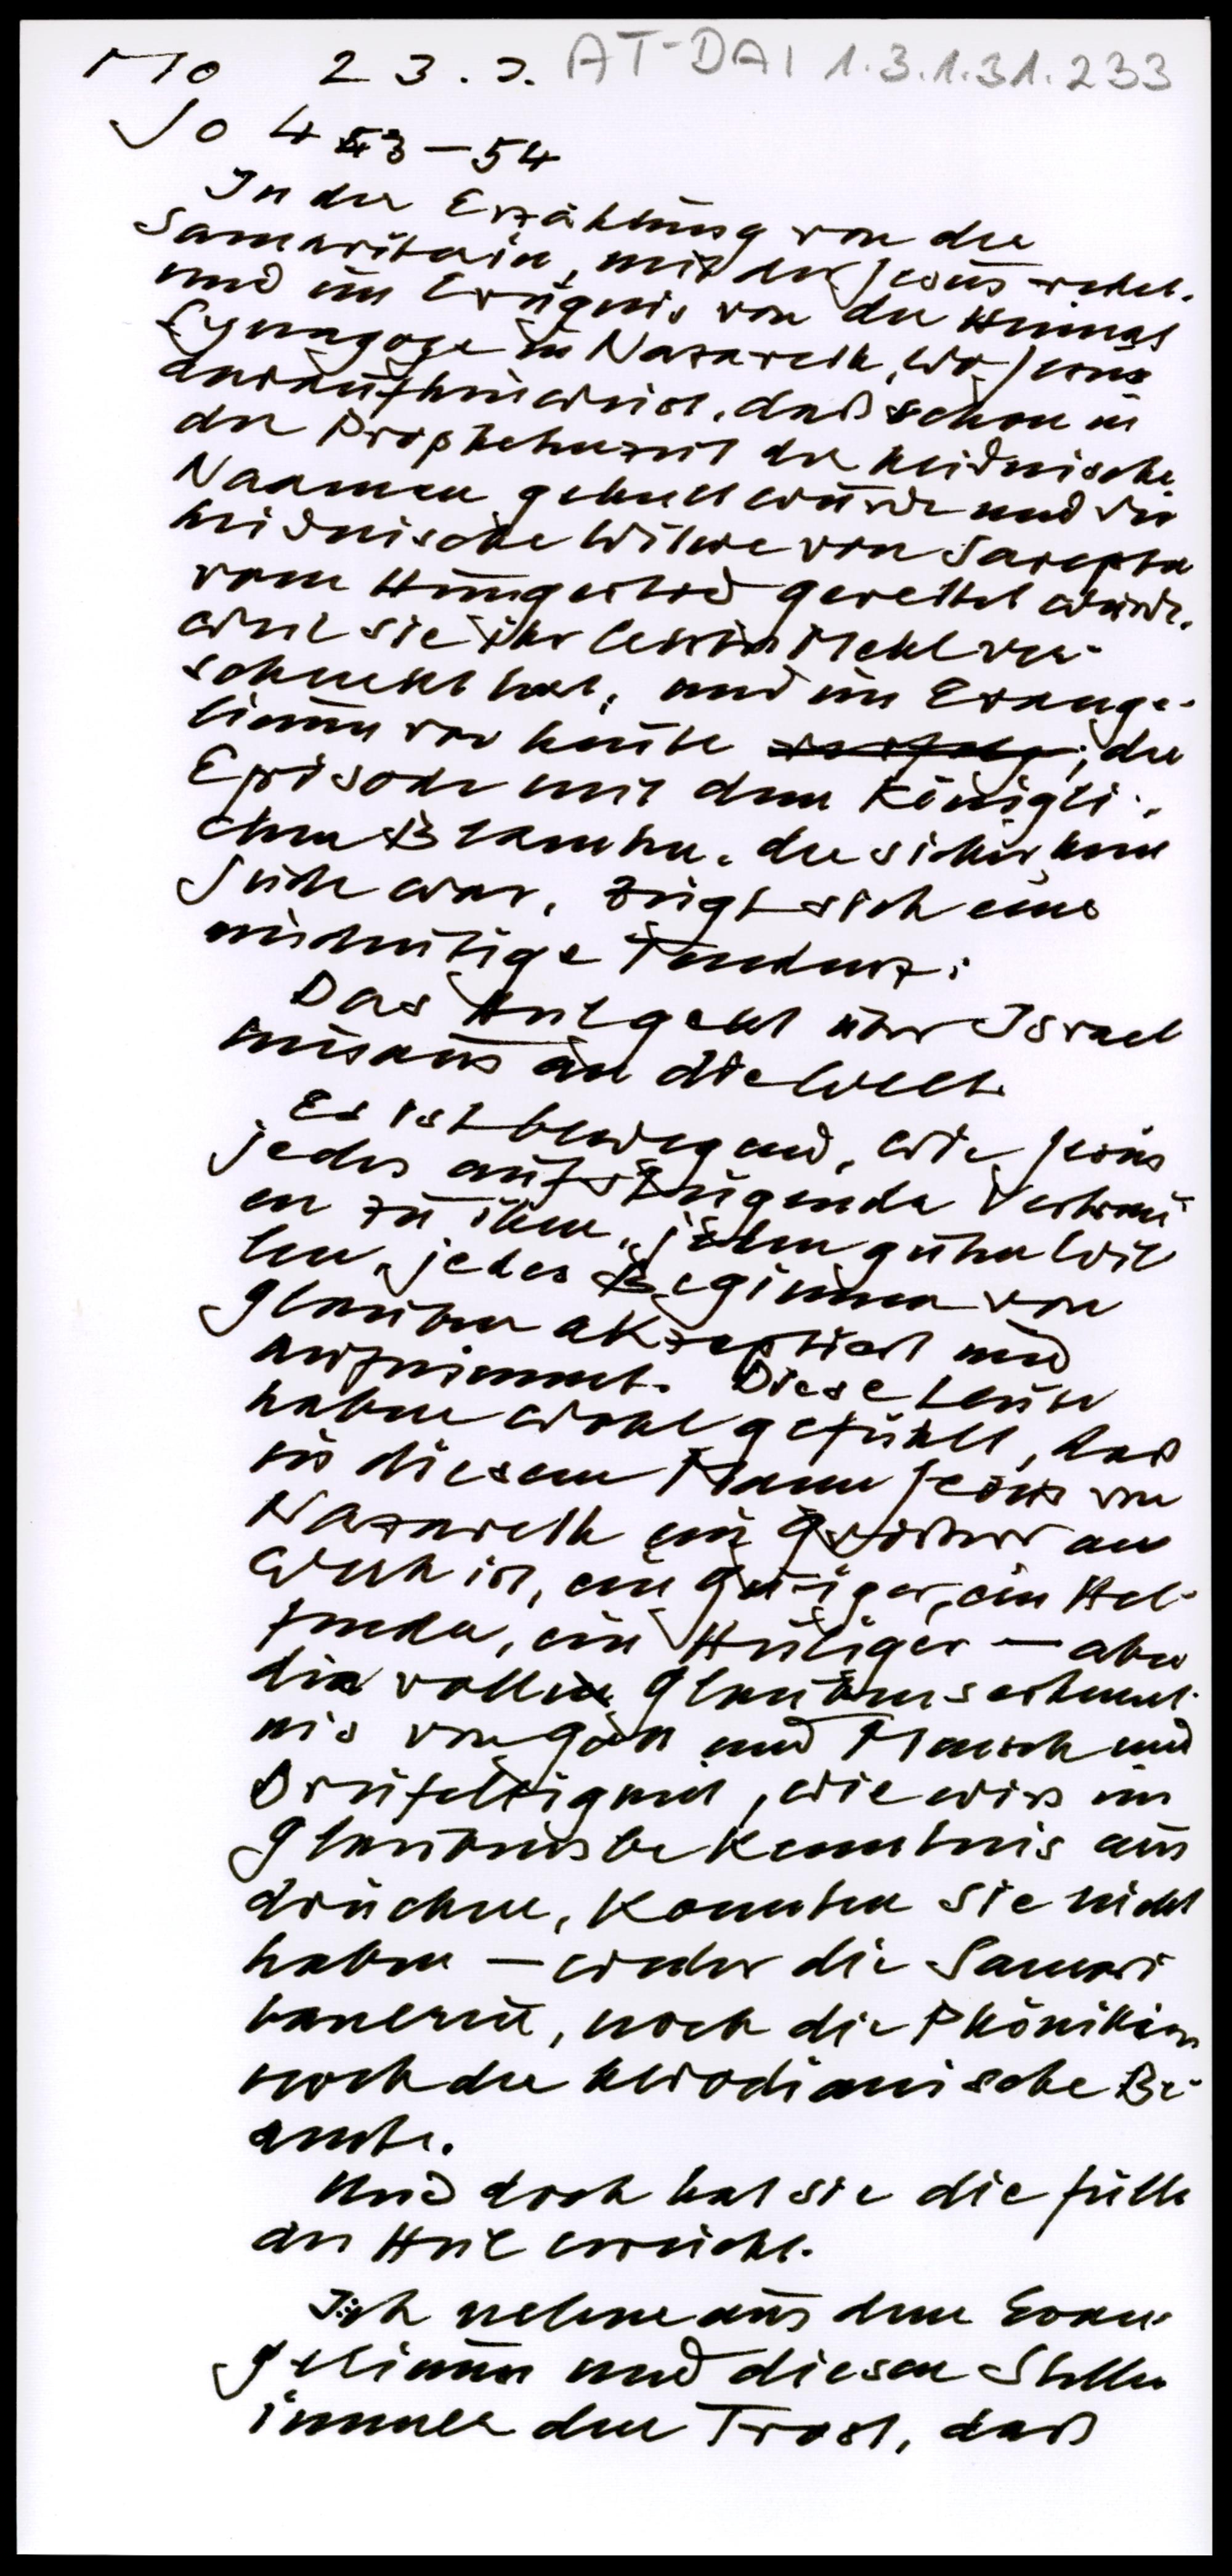 Mo 23.3. AT-DAI 1.3.1.31.233
Jo 4 43-54
In der Erzählung von der
Samariterin, mit der Jesus redet.
und im Ereignis von der Heimat
Synagoge in Nazareth, wo Jesus
daraufhinweist, daß schon in
der Prophetenzeit der heidnische
Naaman geheilt wurde und die
heidnische Witwe von Sarepta
vom Hungertod gerettet wurde,
weil sie ihr letztes Mehl ver-
schenkt hat, und im Evange-
lium von heute, der
Episode mit dem Königli-
chen Beamten, der sicher kein
Jude war, zeigt sich eine
eindeutige Tendenz:
Das Heil geht über Israel
hinaus an die Welt.
Es ist bewegend, wie Jesus
jedes aufsteigende Vertrau
en zu ihm, jeden guten Wil
len, jedes Beginnen von
Glauben akzeptiert und
aufnimmt. Diese Leute
haben wohl gefühlt, daß
in diesem Mann Jesus von
Nazareth ein Größerer am
Werk ist, ein Gütiger, ein Hel-
fender, ein Heiliger – aber
die volle Glaubenserkennt-
nis von Gott und Mensch und
Dreifaltigkeit, wie wirs im
Glaubensbekenntnis aus
drücken, konnten sie nicht
haben – weder die Samari
tanerin, noch die Phönikierin
noch der herodianische Be-
amte.
Und doch hat sie die Fülle
des Heil erreicht.
Ich nehme aus dem Evan-
gelium und diesen Stellen
immer den Trost, daß